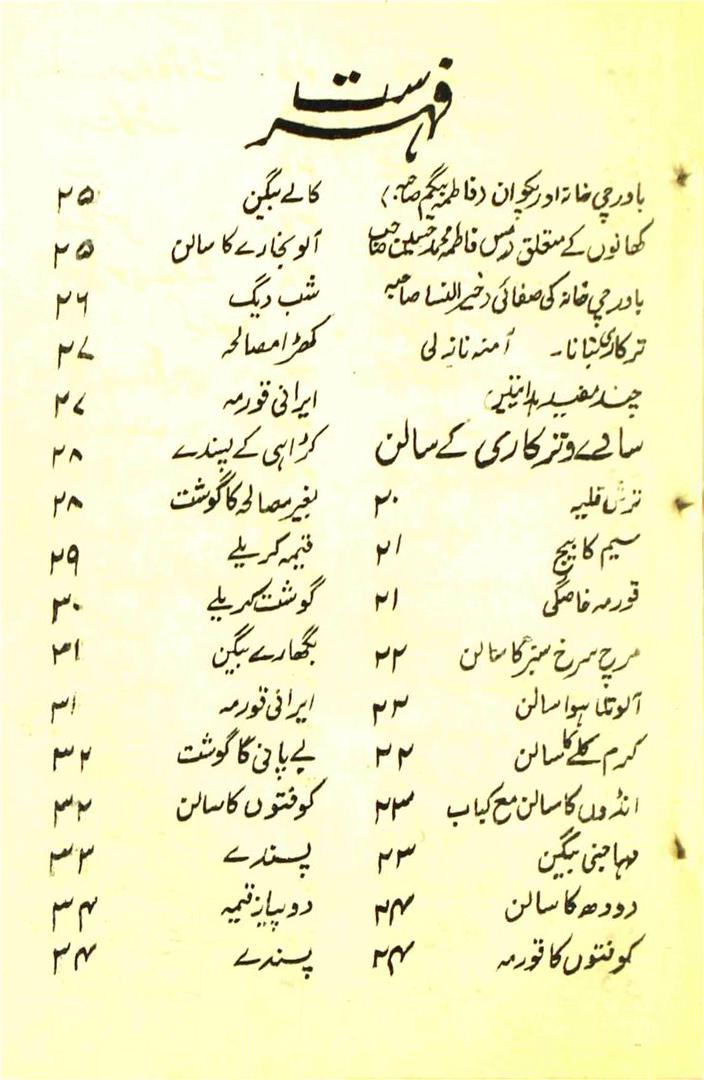 فہرست
باورچی خانہ اور پکوان (فاطمہ بیگم صاحبہ)
کھانوں کے متعلق (مس فاطمہ محمد حسین صاحب
باورچی خانہ کی صفائی (خیر النسا صاحبہ
ترکاری بنانا۔ آمنہ نازلی
چند مفید ہدایتیں
سالے و ترکاری کے سالن
ترش قلیہ ۲۰
سیم کا بیج ۲۱
قورمہ خاصگی ۲۱
مرچ سرخ سبز کا سالن ۲۲
آلو تلا ہوا سالن ۲۳
کرم کلے کا سالن ۲۲
انڈوں کا سالن مع کباب ۲۳
مہاجنی بیگن ۲۳
دودھ کا سالن ۲۴
کوفتوں کا قورمہ ۲۴
کالے بیگن ۲۵
آلو بخارے کا سالن ۲۵
شب دیگ ۲۶
کھڑا مصالحہ ۲۷
ایرانی قورمہ ۲۷
کڑاہی کے پسندے ۲۸
بغیر مصالحہ کا گوشت ۲۸
قیمہ کریلے ۲۹
گوشت کریلے ۳۰
بگھارے بیگن ۳۱
ایرانی قورمہ ۳۱
بے پانی کا گوشت ۳۲
کوفتوں کا سالن ۳۲
پسندے ۳۳
دوپیازہ قیمہ ۳۴
پسندے ۳۴